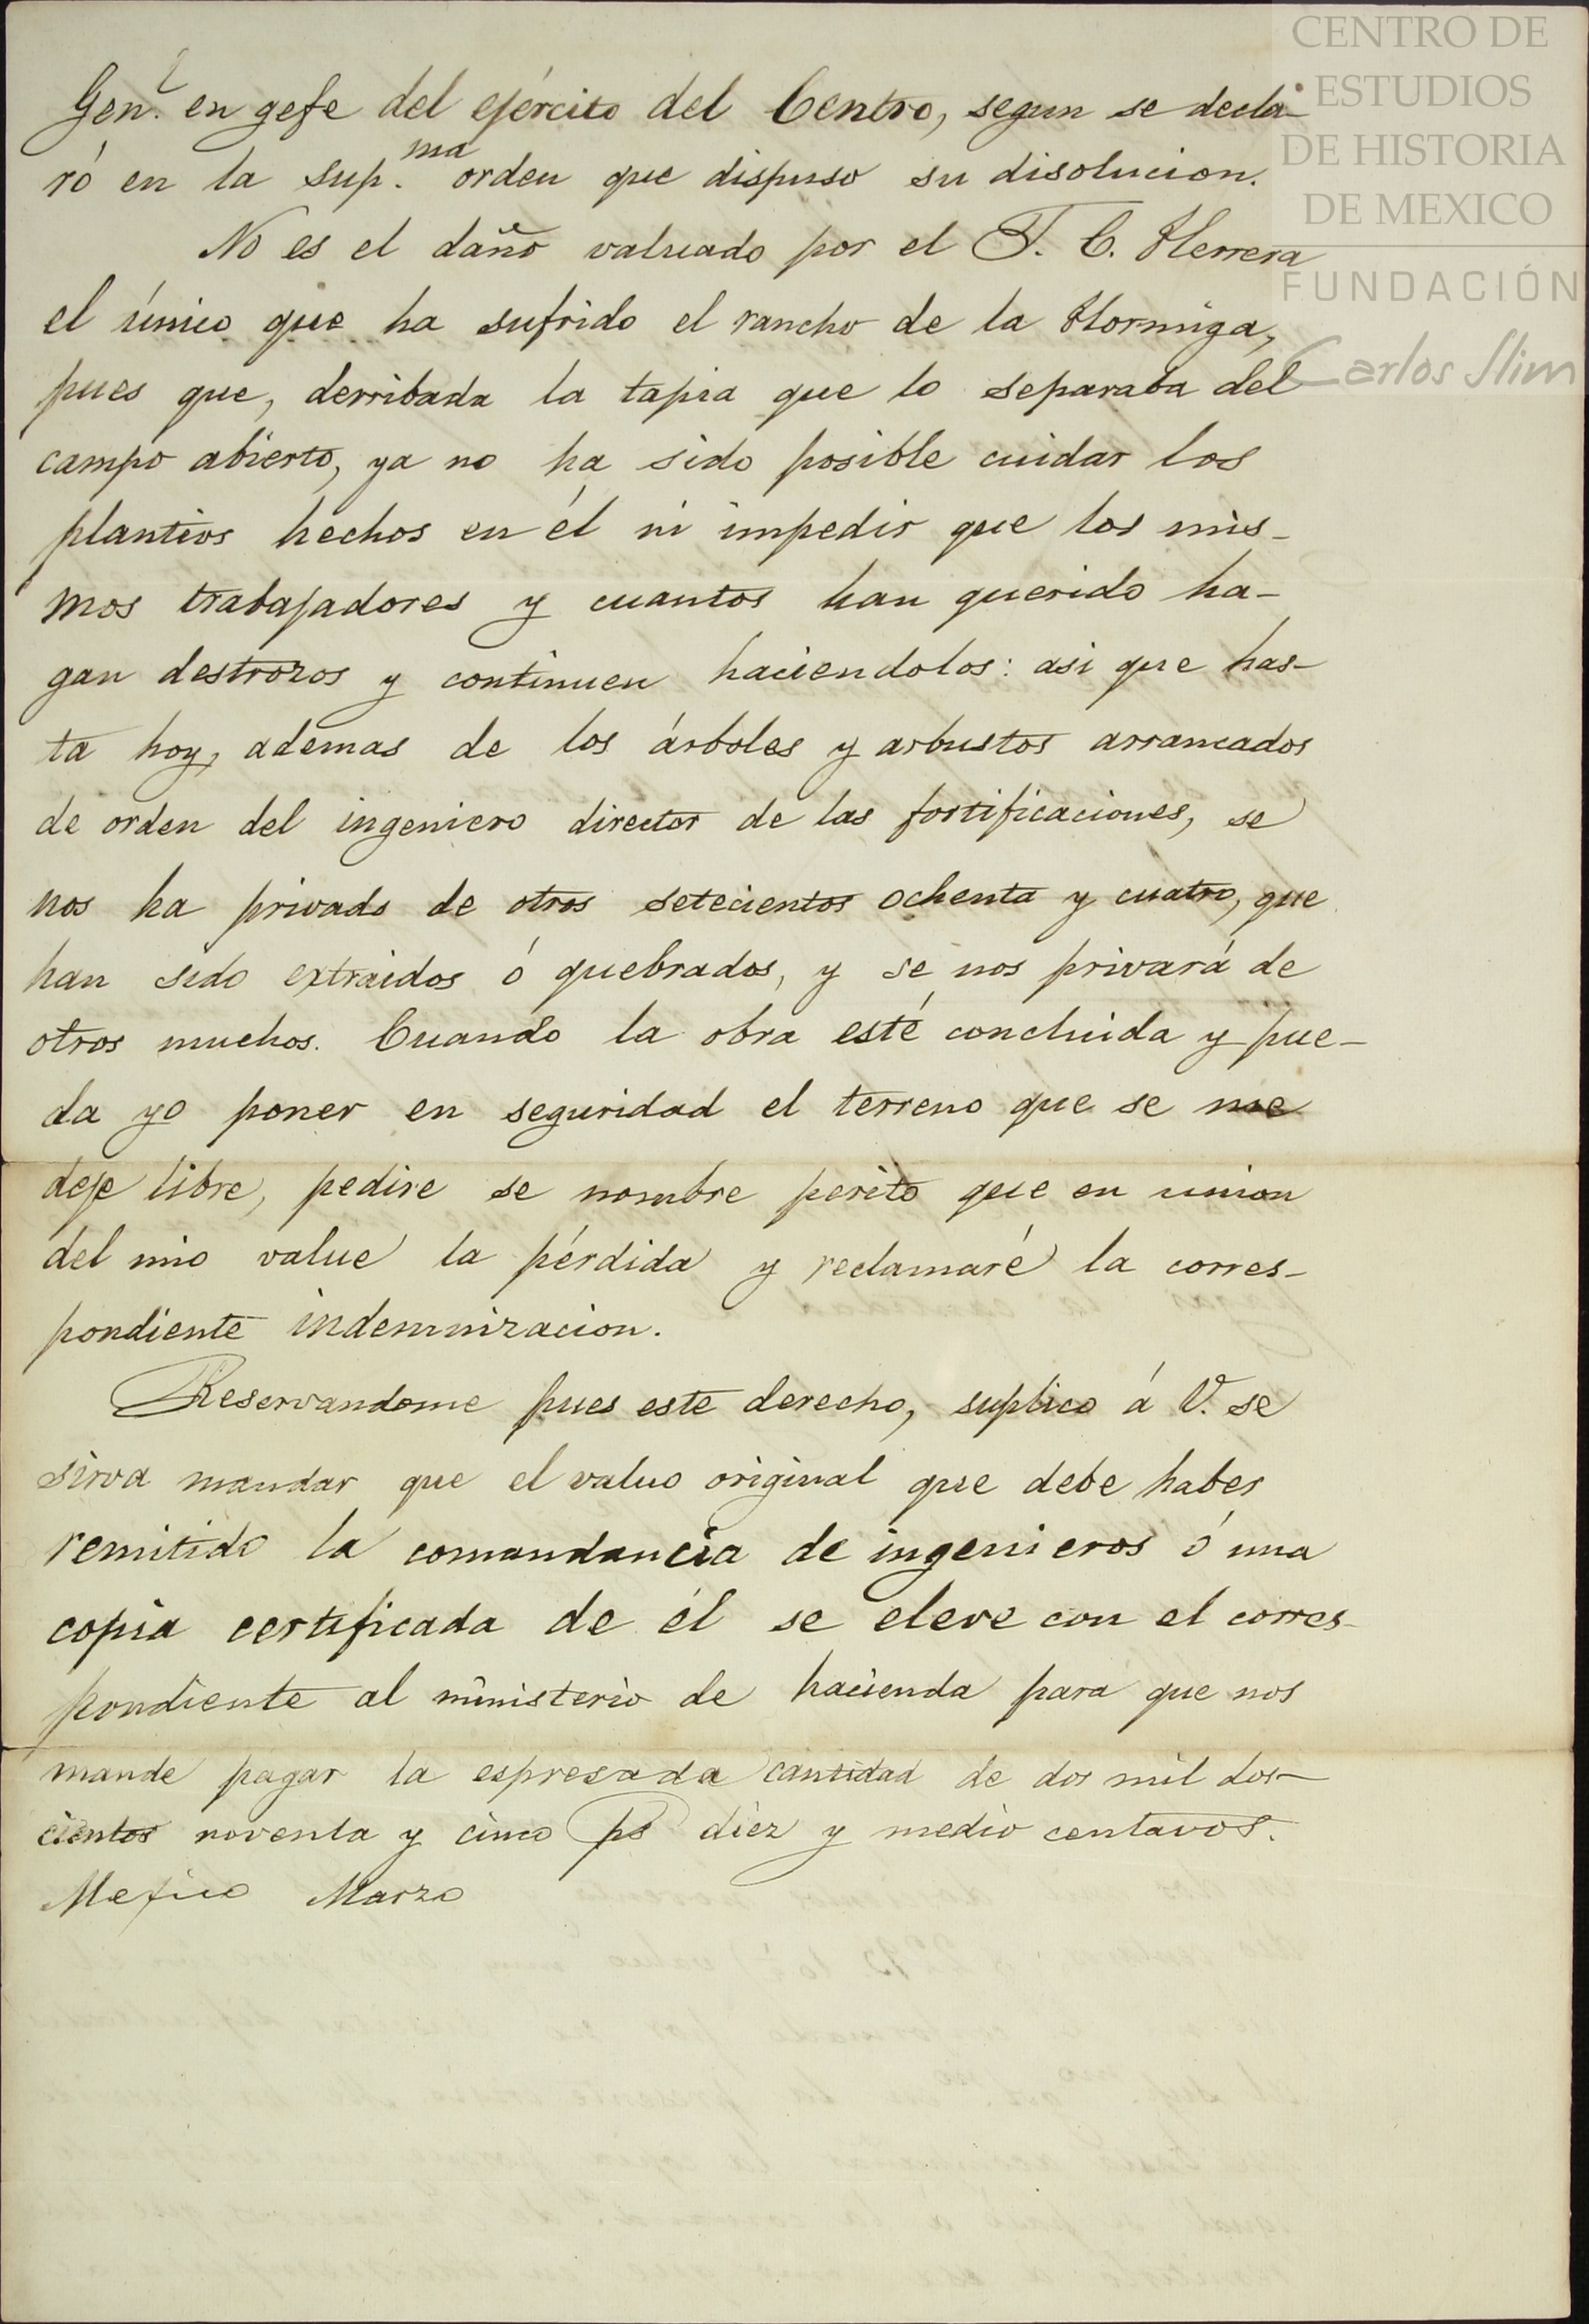 CENTRO DE
ESTUDIOS
DE HISTORIA
DE MEXICO
FUNDACIÓN
Carlos Slim
Gen.l en gefe del ejército del Centro, segun se decla-
ró en la sup.ma orden que dispuso su disolucion.
No es el daño valuado por el T. C. Herrera
el único que ha sufrido el rancho de la Hormiga,
pues que, derribada la tapia que lo separaba del
campo abierto, ya no ha sido posible cuidar los
plantios hechos en él ni impedir que los mis-
mos trabajadores y cuantos han querido ha-
gan destrozos y continuen haciendolos: asi que has-
ta hoy, ademas de los árboles y arbustos arrancados
de orden del ingeniero director de las fortificaciones, se
nos ha privado de otros setecientos ochenta y cuatro, que
han sido extraidos ó quebrados, y se nos privará de
otros muchos. Cuando la obra esté concluida y pue-
da yo poner en seguridad el terreno que se me
deje libre, pedire se nombre perito que en union
del mio value la pérdida y reclamaré la corres-
pondiente indemnizacion.
Reservandome pues este derecho, suplico á V. se
sirva mandar que el valuo original que debe haber
remitido la comandancia de ingenieros ó una
copia certificada de él se eleve con el corres-
pondiente al ministerio de hacienda para que nos
mande pagar la espresada cantidad de dos mil dos-
cientos noventa y cinco ps diez y medio centavos.
Mexico Marzo